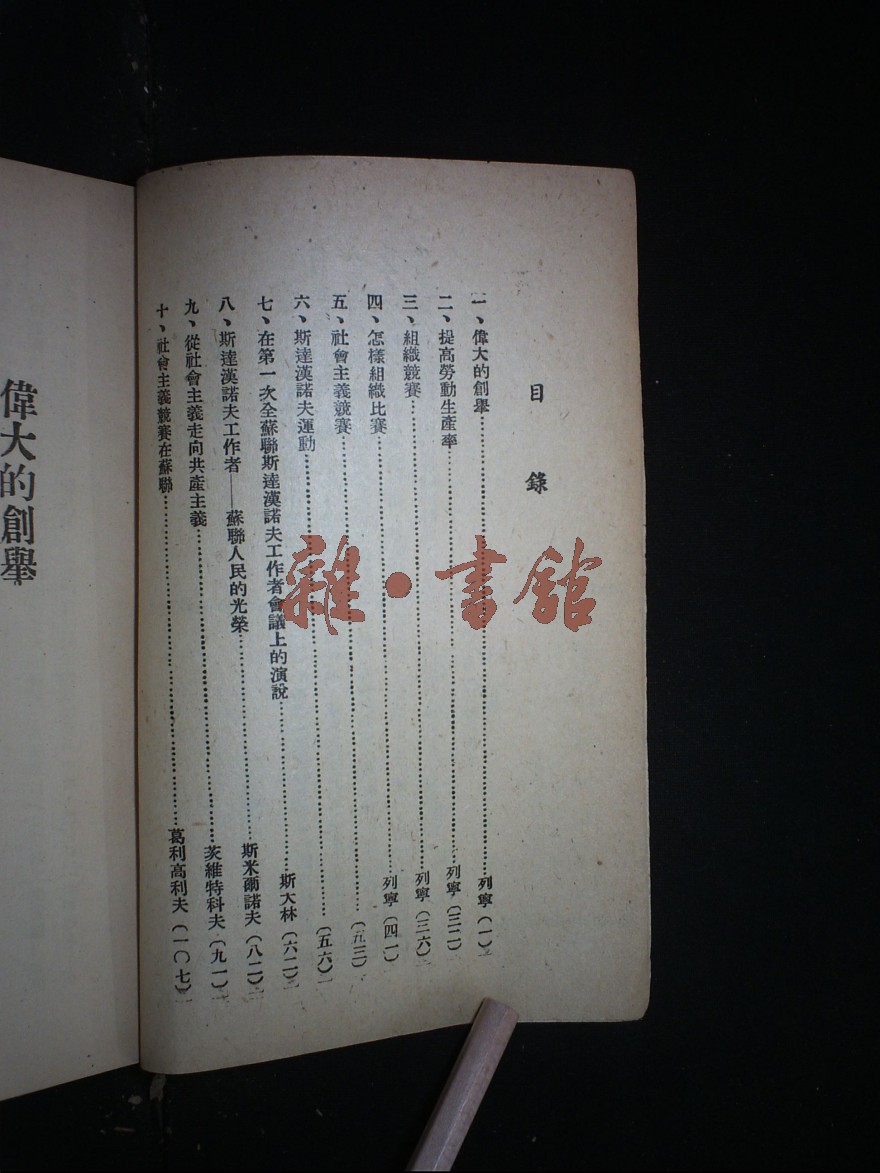 目錄
一、偉大的創舉…………列寧(一)
二、提高勞動生產率…………列寧(三二)
三、組織競賽…………列寧(三六)
四、怎樣組織比賽…………列寧(四一)
五、社會主義競賽…………(五三)
六、斯達漢諾夫運動…………(五六)
七、在第一次全蘇聯斯達漢諾夫工作者會議上的演說…………斯大林(六二)
八、斯達漢諾夫工作者——蘇聯人民的光榮…………斯米爾諾夫(八二)
九、從社會主義走向共產主義…………茨維特科夫(九一)
十、社會主義競賽在蘇聯…………葛利高利夫(一〇七)
偉大的創舉
雜·書館